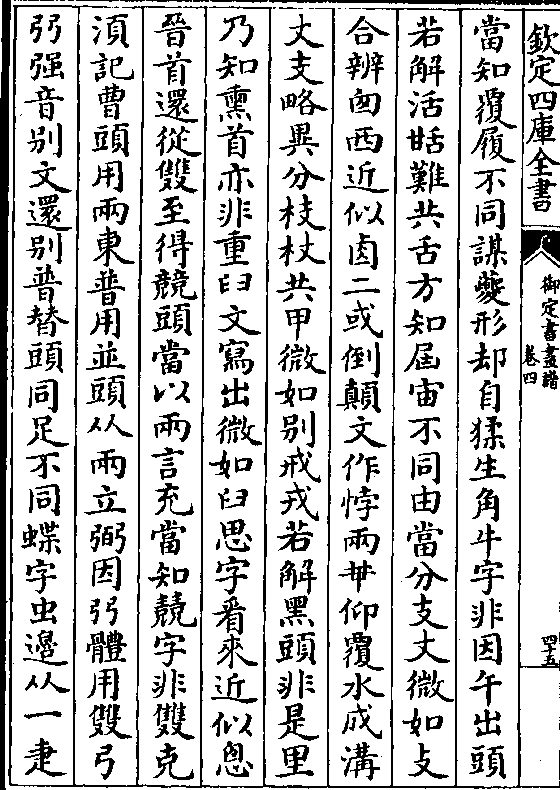 欽定四庫全書
御定書畫譜
卷四
四十五
當知覆履不同謀夔形却自猱生角牛字非因午出頭
若解活甛難共舌方知屆宙不同由當分支丈微如攴
合辨囪西近似卤二或倒顛文作悖兩丰仰覆水成溝
丈支略異分枝杖共甲微如別戒戎若解黑頭非是里
乃知熏首亦非重臼文寫出微如臼思字看來近似恖
晉首還從雙至得競頭當以兩言充當知兢字非雙克
湏記曹頭用兩東普用並頭从兩立弼因弜體用雙弓
弜强音別文還別普替頭同足不同蝶字虫邊从一疌